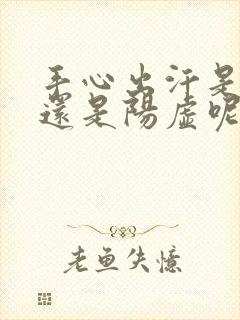 手心出汗是
還是陽虛呢
老鱼失憶